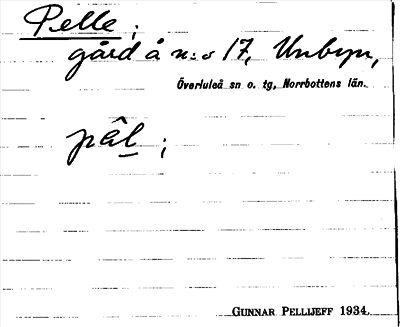 Pelle ;
gård å n:o 17, Unbyn,
Överluleå sn o. tg, Norrbottens län.
pâl ;
GUNNAR PELLIJEFF 1934.